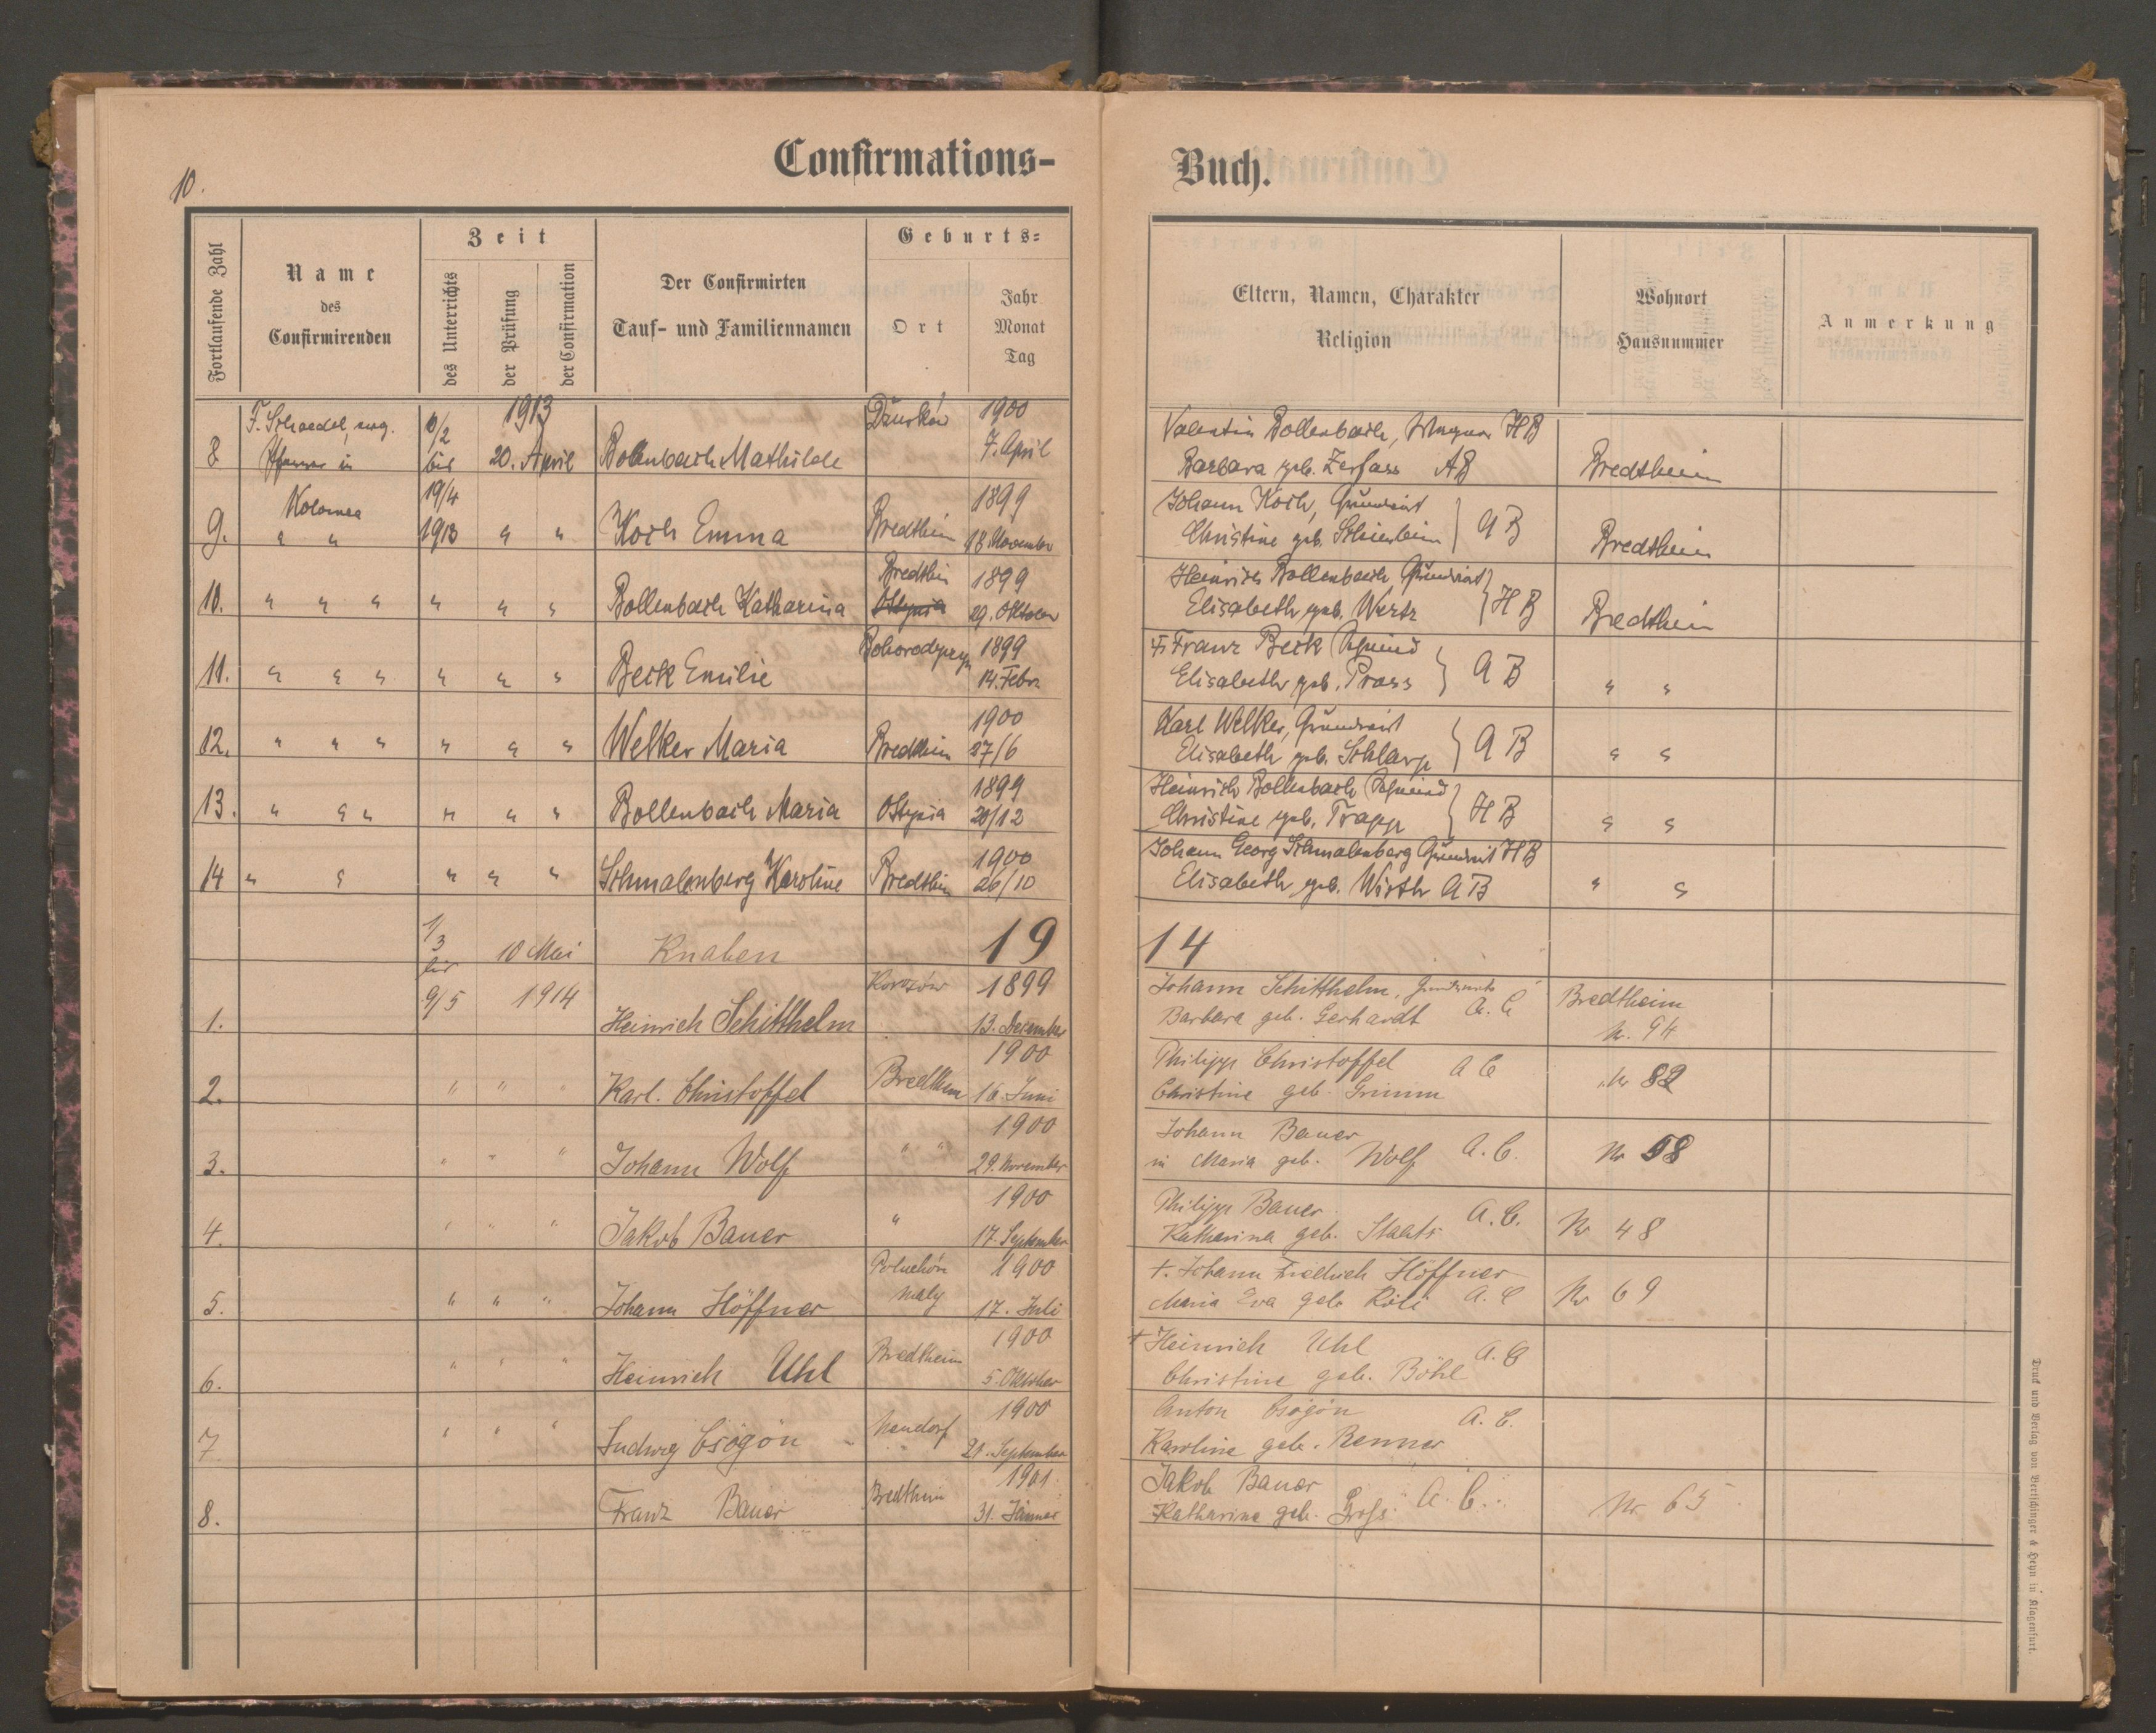 10.
Confirmations-
Buch.
Fortlaufende Zahl
Name
des
Confirmirenden
Zeit
des Unterrichts
der Prüfung
der Confirmation
Der Confirmirten
Tauf- und Familiennamen
Geburts-
Ort
Jahr
Monat
Tag
Eltern, Namen, Charakter
Religion
Wohnort
Hausnummer
Anmerkung
8 F. Schaedel, evg. Pfarrer in /2 bis 1913 20. April Bollenbach Mathilde Dźurków 1900 7. April
Valentin Bollenbach, Wagner HB
Barbara geb. Zerfass AB Bredtheim
9. Kolomea " " 19/4 1913 " " Koch Emma Bredtheim 1899 18. November
Johann Koch, Grundwirt
Christine geb. AB Bredtheim
10. " " " " " " Bollenbach Katharina Bredthein Ottynia 1899 29. Oktober
Heinrich Bollenbach Grundwirt
Elisabeth geb. HB Bredtheim
11. " " " " " " Beck Emilie 1899 14. Febr.
Franz Beck Schmied
Elisabeth geb. Pross AB " "
12. " " " " " " Welker Maria Bredtheim 1900 27/6
Karl Welker, Grundwirt
Elisabeth geb. Schlarp AB " "
13. " " " " " " Bollenbach Maria Ottynia 1899 20/12
Heinrich Bollenbach Schmied
Christine geb. Trapp HB " "
14 " " " " " Schmalenberg Karoline Bredtheim 1900 26/10
Johann Georg Schmalenberg Grundwirt HB
Elisabeth geb. Wirth AB " "
1/3 bis 10 Mai Knaben 19
14
1. 9/5 1914 Heinrich Schitthelm 1899 13. Dezember
Johann Schitthelm, Grundwirt
Barbara geb. Gerhardt A.C Bredtheim
N. 94
2. " " " Karl. Christoffel Bredtheim 1900 16. Juni
Philipp Christoffel AC
Christine geb. Grimm Nr 82
3. " " " Johann Wolf " " 1900 29. November
Johann Bauer
in Maria geb. Wolf A.C. Nr 58
4. " " " Jakob Bauer " 1900 17. September
Philipp Bauer
Katharina geb. Staats A.C. Nr 48
5. " " " Johann Höffner maly 1900 17. Juli
†. Johann Friedrich Höffner
Maria Eva geb A.C Nr 69
6. " " " Heinrich Uhl Bredtheim 1900 5. Oktober
† Heinrich Uhl
Christine geb. Böhl A.C
7 " " " Ludwig Csögön Neudorf 1900 September
Anton Csögön
Karoline geb. Renner A.C.
8. Franz Bauer Bredtheim 1901 31. Jänner
Jakob Bauer
Katharina geb. Gross A.C. Nr 65
Druck und Verlag von Bertschinger & Heyn in Klagenfurt.